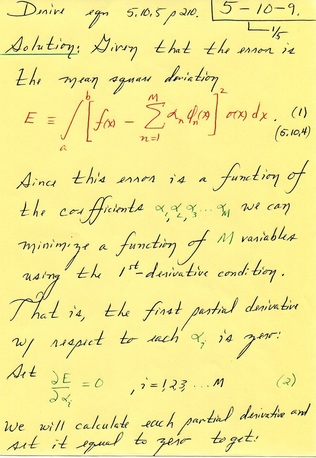 Derive eqn 5.10.5 p210. 5-10-9.
1/5
Solution: Given that the error is
the mean square deviation
E ≡ ∫_a^b [f(x) - Σ_{n=1}^{M} α_n φ_n(x)]² σ(x) dx. (1)
(5.10.4)
Since this error is a function of
the coefficients α₁, α₂, α₃ ... α_M we can
minimize a function of M variables
using the 1st-derivative condition.
That is, the first partial derivative
w/ respect to each α_i is zero:
Set
∂E/∂α_i = 0 , i=1,2,3, ... M (2)
We will calculate each partial derivative and
set it equal to zero to get: